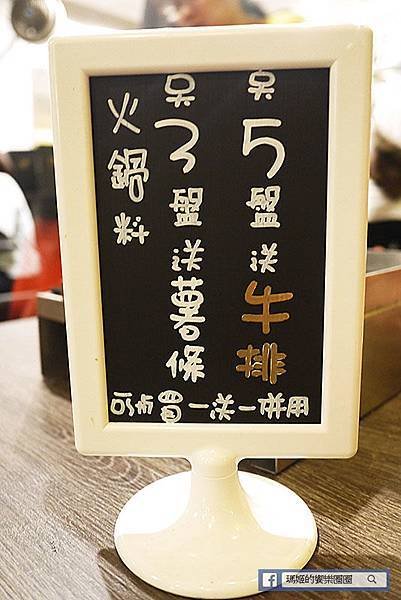 吳5盤送牛排
吳3盤送薯條
火鍋料
可與買一送一併用
瑪姬的饗樂圈圈